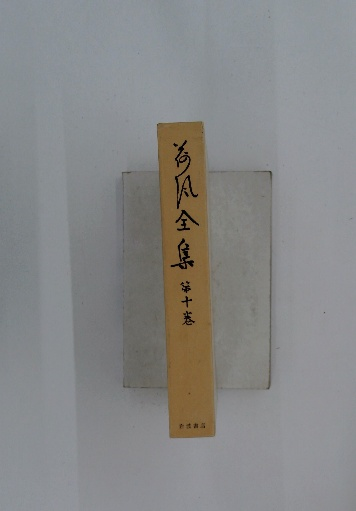 荷風全集
第十巻
岩波書店